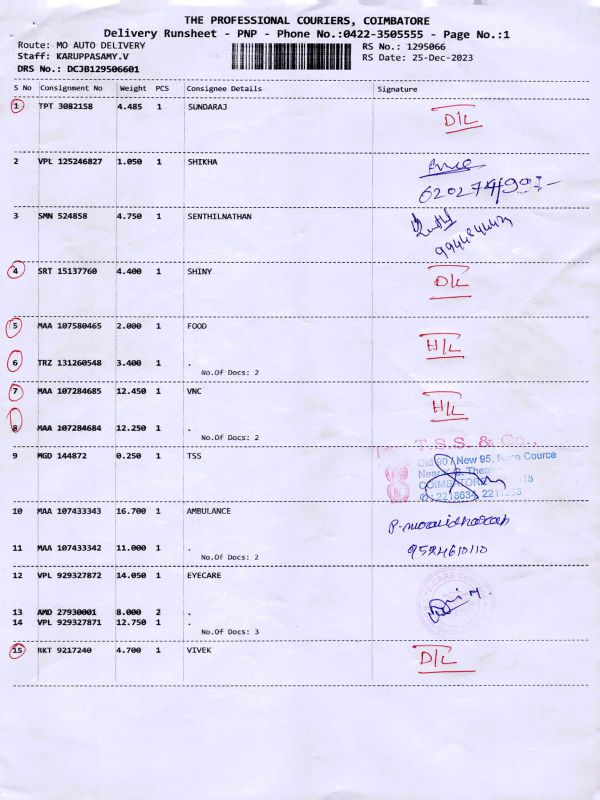 THE PROFESSIONAL COURIERS, COIMBATORE
Delivery Runsheet - PNP - Phone No.:0422-3505555 - Page No.:1
Route: MO AUTO DELIVERY RS No.: 1295066
Staff: KARUPPASAMY.V RS Date: 25-Dec-2023
DRS No.: DCJB129506601
S No Consignment No Weight PCS Consignee Details Signature
1 TPT 3082158 4.485 1 SUNDARAJ
D/L
2 VPL 125246827 1.050 1 SHIKHA
3 SMN 524858 4.750 1 SENTHILNATHAN
4 SRT 15137760 4.400 1 SHINY
D/L
5 MAA 107580465 2.000 1 FOOD
H/L
6 TRZ 131260548 3.400 1 .
No.Of Docs: 2
7 MAA 107284685 12.450 1 VNC
H/L
8 MAA 107284684 12.250 1 .
No.Of Docs: 2
T.S.S. & Co.,
9 MGD 144872 0.250 1 TSS
Old 90 / New 95, Race Cource
COIMBATORE
10 MAA 107433343 16.700 1 AMBULANCE
11 MAA 107433342 11.000 1 .
9524610110
No.Of Docs: 2
12 VPL 929327872 14.050 1 EYECARE
13 AMD 27930001 8.000 2 .
14 VPL 929327871 12.750 1 .
No.Of Docs: 3
15 RKT 9217240 4.700 1 VIVEK
D/L